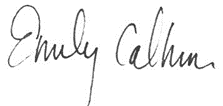 Emily Calhoun